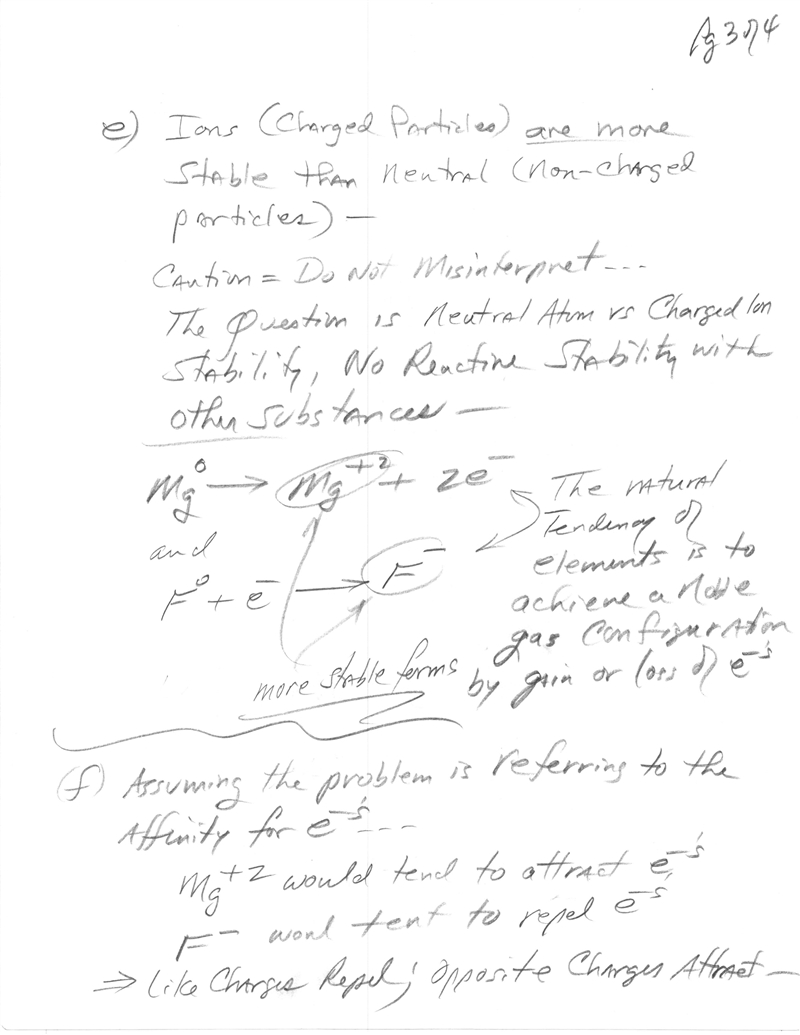 Pg 3 of 4
e) Ions (Charged Particles) are more
Stable than neutral (non-charged
particles) —
Caution = Do Not Misinterpret...
The Question is Neutral Atom vs Charged Ion
Stability, No Reactive Stability with
other substances —
Mg⁰ → Mg⁺² + 2e⁻
and
F⁰ + e⁻ → F⁻
more stable forms
The natural
Tendency of
elements is to
achieve a Noble
gas Configuration
by gain or loss of e⁻'s
(f) Assuming the problem is referring to the
Affinity for e⁻'s...
Mg⁺² would tend to attract e⁻'s
F⁻ woul tent to repel e⁻'s
⇒ Like Charges Repel; Opposite Charges Attract —